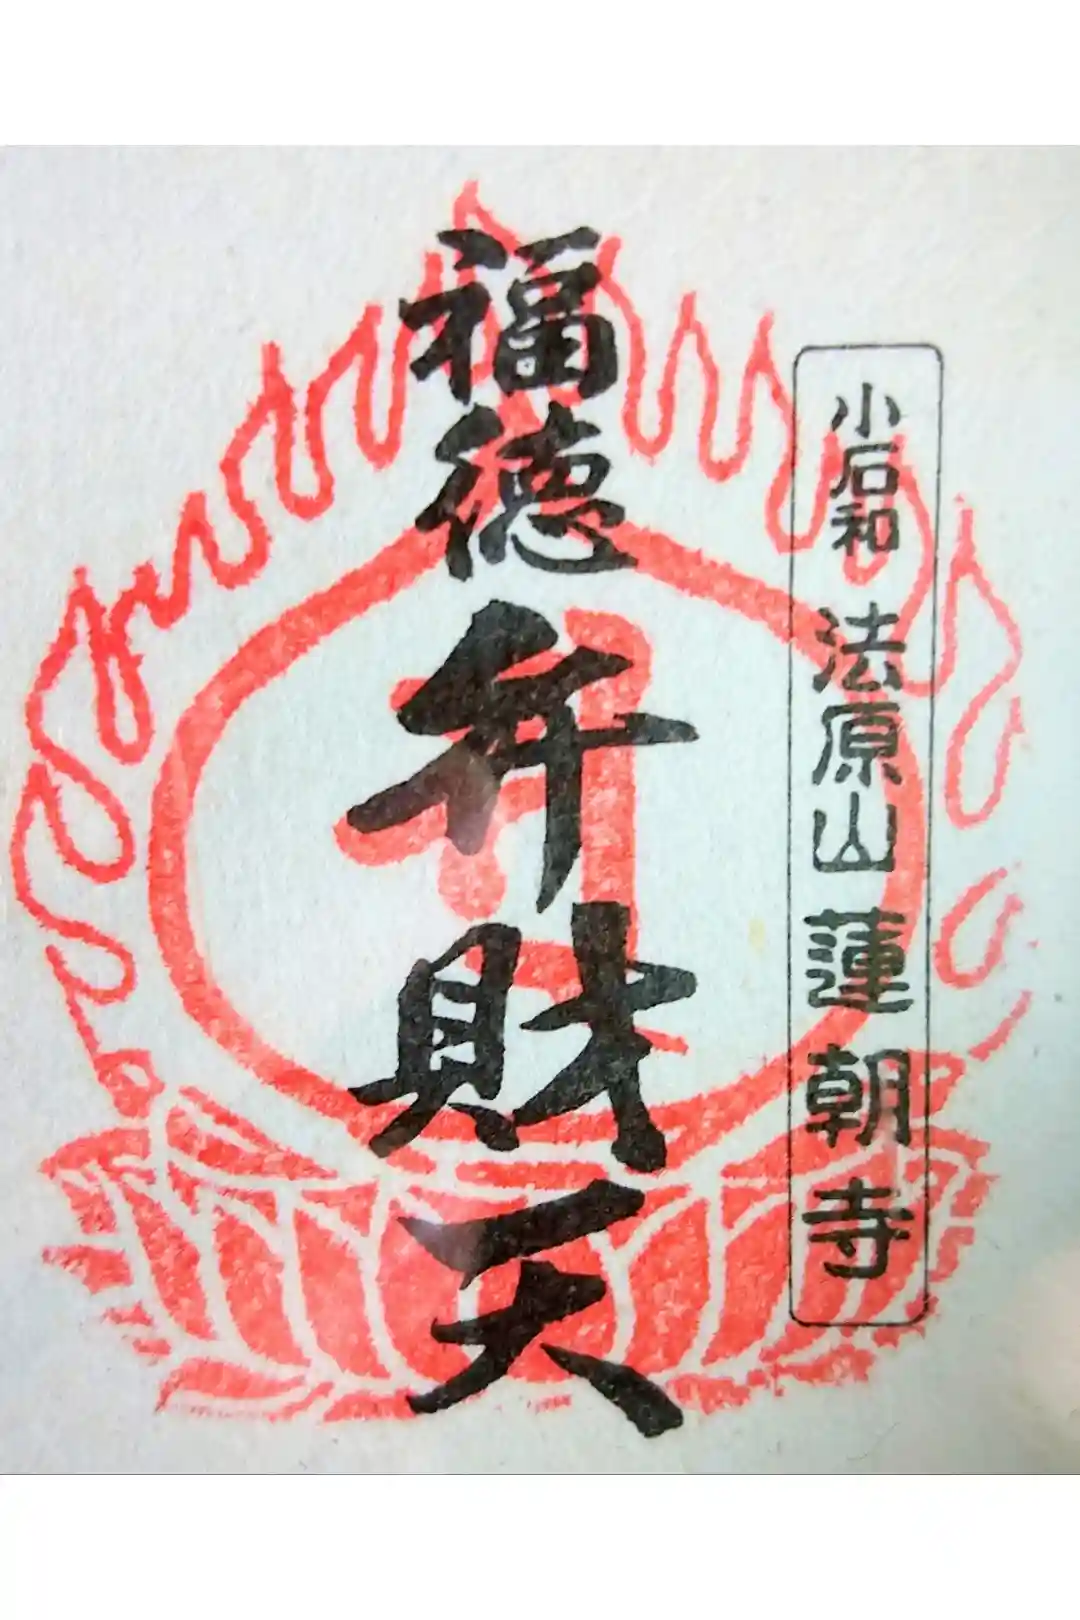 小石和 法原山 蓮朝寺
福徳 弁財天